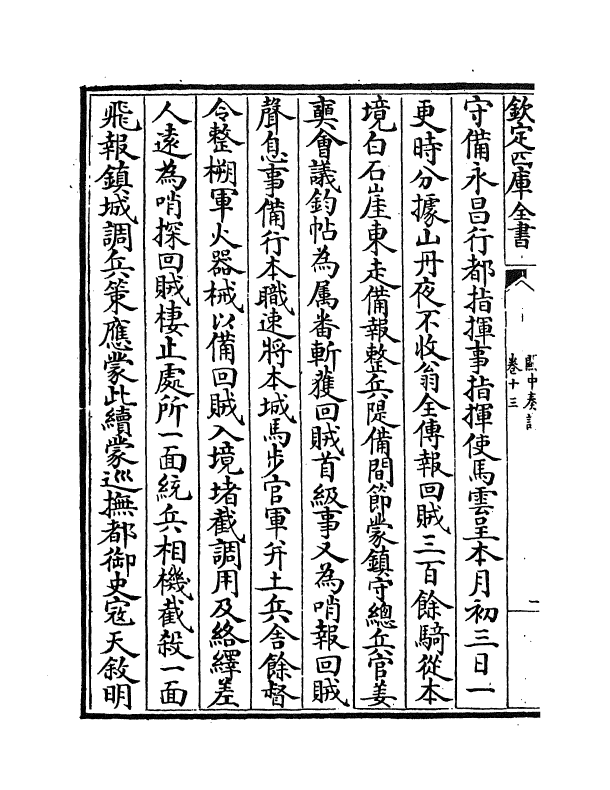 欽定四庫全書
卷十三
守備永昌行都指揮事指揮使馬雲呈本月初三日一
更時分據山丹夜不收翁全傳報回賊三百餘騎從本
境白石崖東走備報整兵隄備間節蒙鎮守總兵官姜
奭會議鈞帖為属畨斬獲回賊首級事又為哨報回賊
聲息事備行本職速將本城馬步官軍并土兵舍餘督
令整搠軍火器械以備回賊入境堵截調用及絡繹差
人遠為哨探回賊棲止處所一面統兵相機截殺一面
飛報鎮城調兵策應蒙此續蒙巡撫都御史寇天敘明